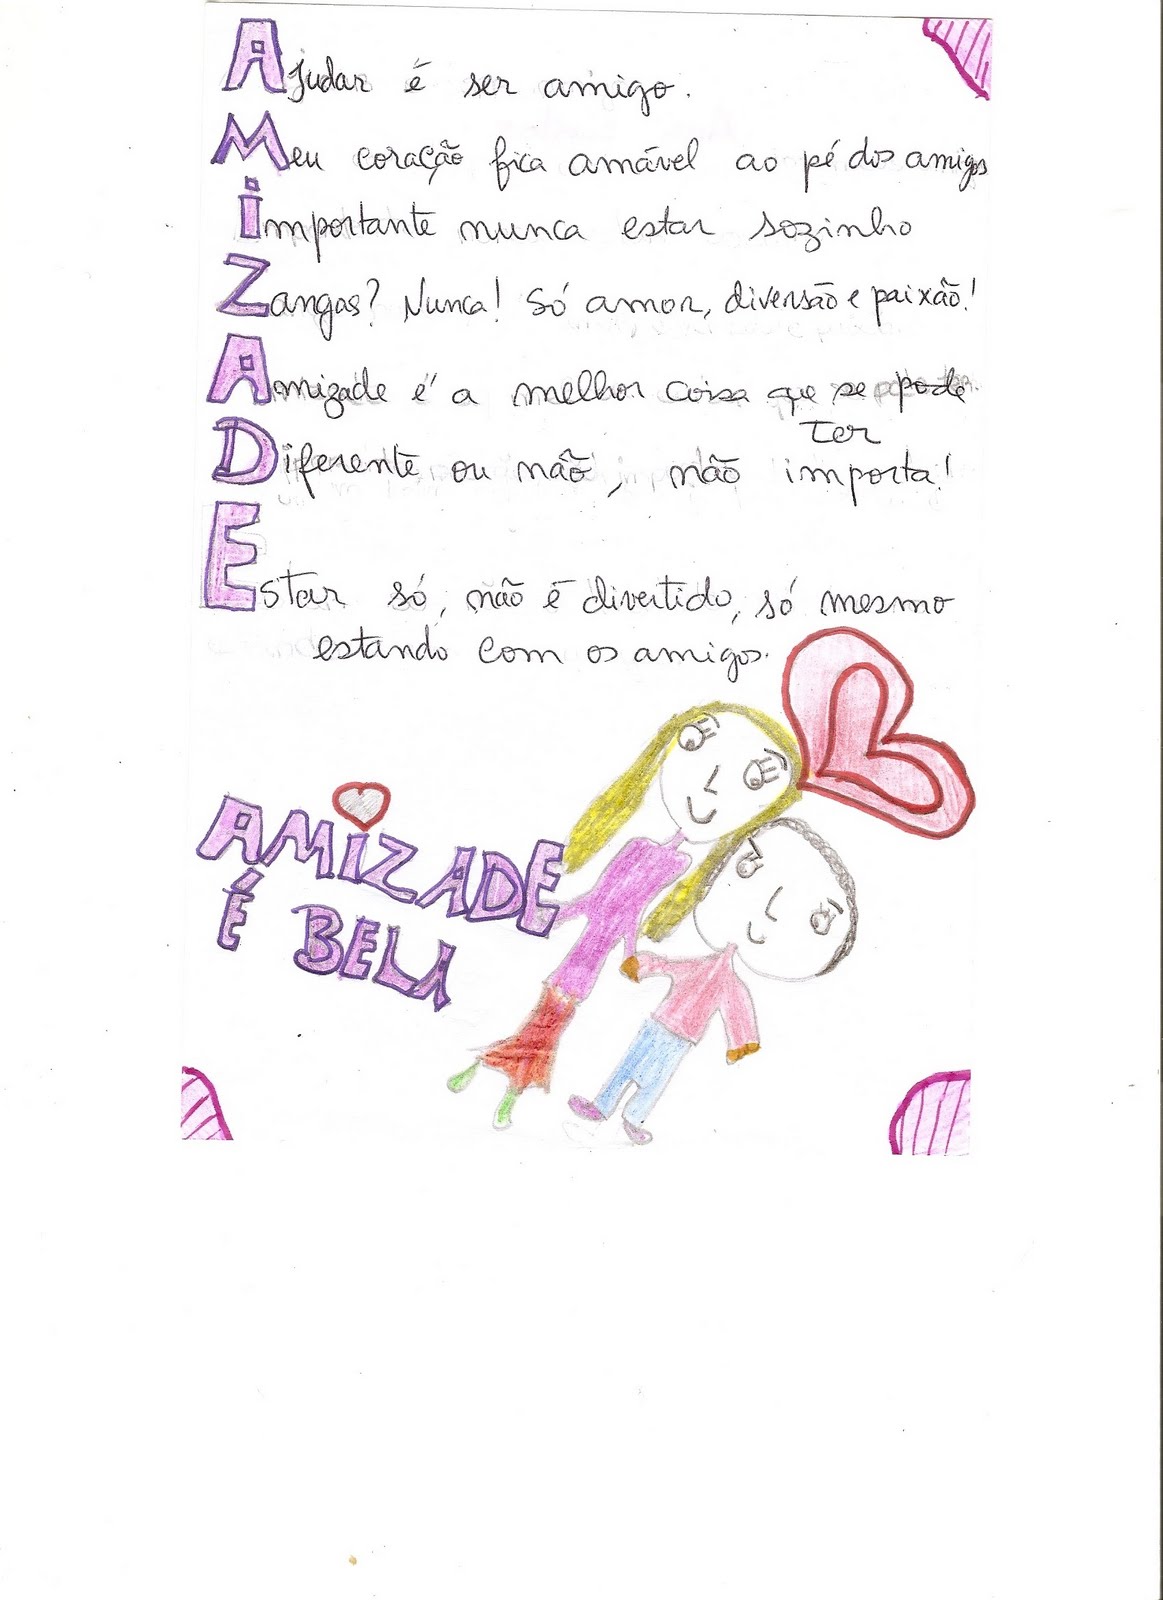 Ajudar é ser amigo.
Meu coração fica amável ao pé dos amigos
importante nunca estar sozinho
Zangas? Nunca! Só amor, diversão e paixão!
Amizade é a melhor coisa que se pode
Ter
Diferente ou não, não importa!
Estar só, não é divertido, só mesmo
estando com os amigos.
AMIZADE
É BELA